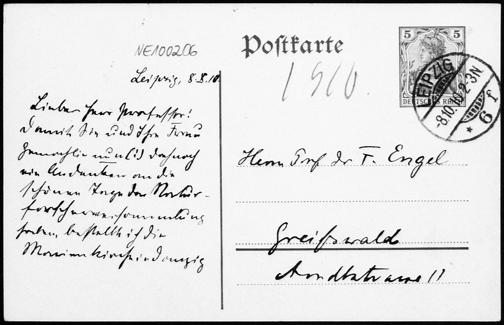 NE100206
Postkarte
5 5
DEUTSCHES REICH
LEIPZIG
-8.10.10.2-3N
* 6 f
1910.
Leipzig, 8.X.10
Lieber Herr Professor!
Damit Sie und Ihre Frau
Gemahlin
ein Andenken an die
schönen Tage der Natur-
forscherversammlung
haben, bestellte ich die
Marienkirche in Danzig
Herrn Prof. Dr. F. Engel
Greifswald
Arndtstrasse 11